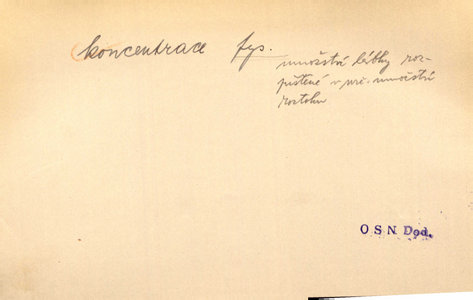 koncentrace fys.
množství látky roz-
puštěné v urč. množství
roztoku
OSN Dod.